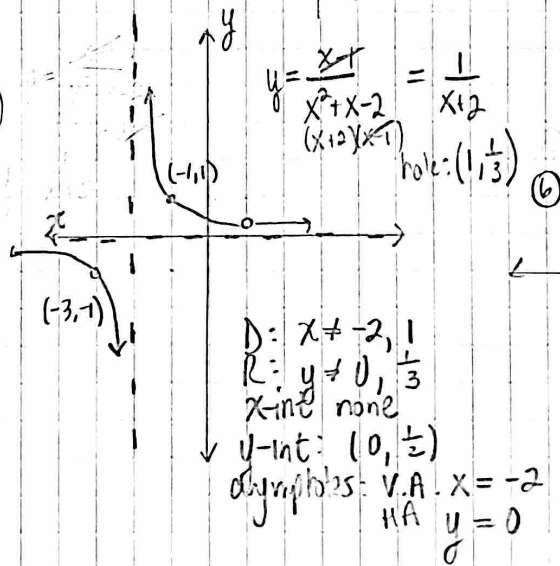 y
y = x-1 / x²+x-2 = 1 / x+2
(x+2)(x-1)
hole: (1, 1/3)
(-1,1)
⑥
(-3,-1)
D: x ≠ -2, 1
R: y ≠ 0, 1/3
x-int none
y-int: (0, 1/2)
asymptotes: V.A. x = -2
HA y = 0